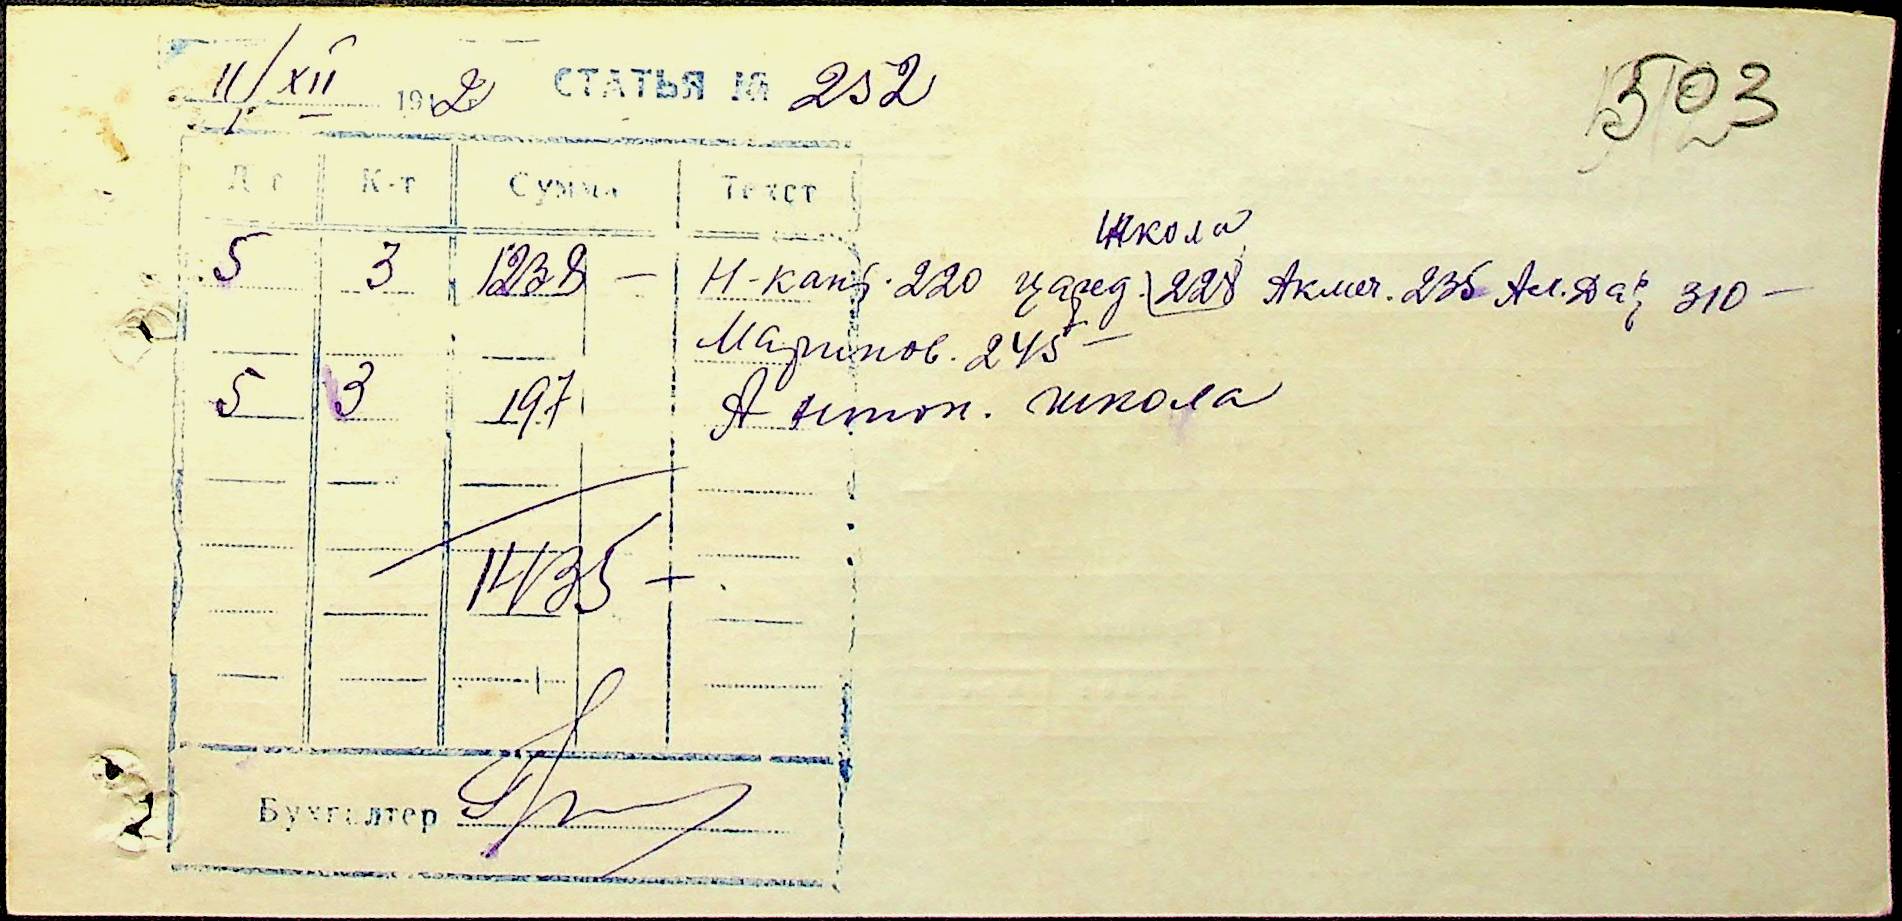 11/XII 1942 СТАТЬЯ № 252
503
Д-т К-т Сумма Текст
Школа
5 3 1238 — Н-канд. 220 228 Акмеч. 235 Ак.Дар 310 —
Маринов. 245 —
5 3 197 Антон. школа
1435 —
Бухгалтер